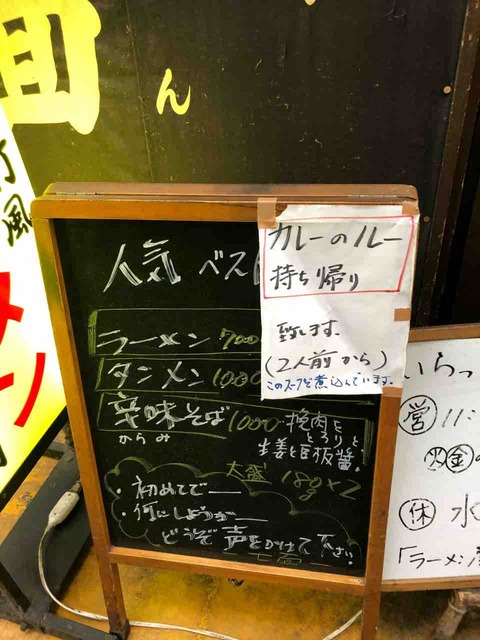 ん
人気 ベスト
カレーのルー
持ち帰り
致します。
(2人前から)
このスープを煮込んでいます。
ラーメン 700
タンメン 1000
辛味そば 1000
からみ
挽肉を
とろりと
生姜と豆板醤。
大盛 180g×2
・初めてで―
・何にしようか―
どうぞ声をかけて下さい。
いらっ
営 11:
火 金
休 水
「ラーメン